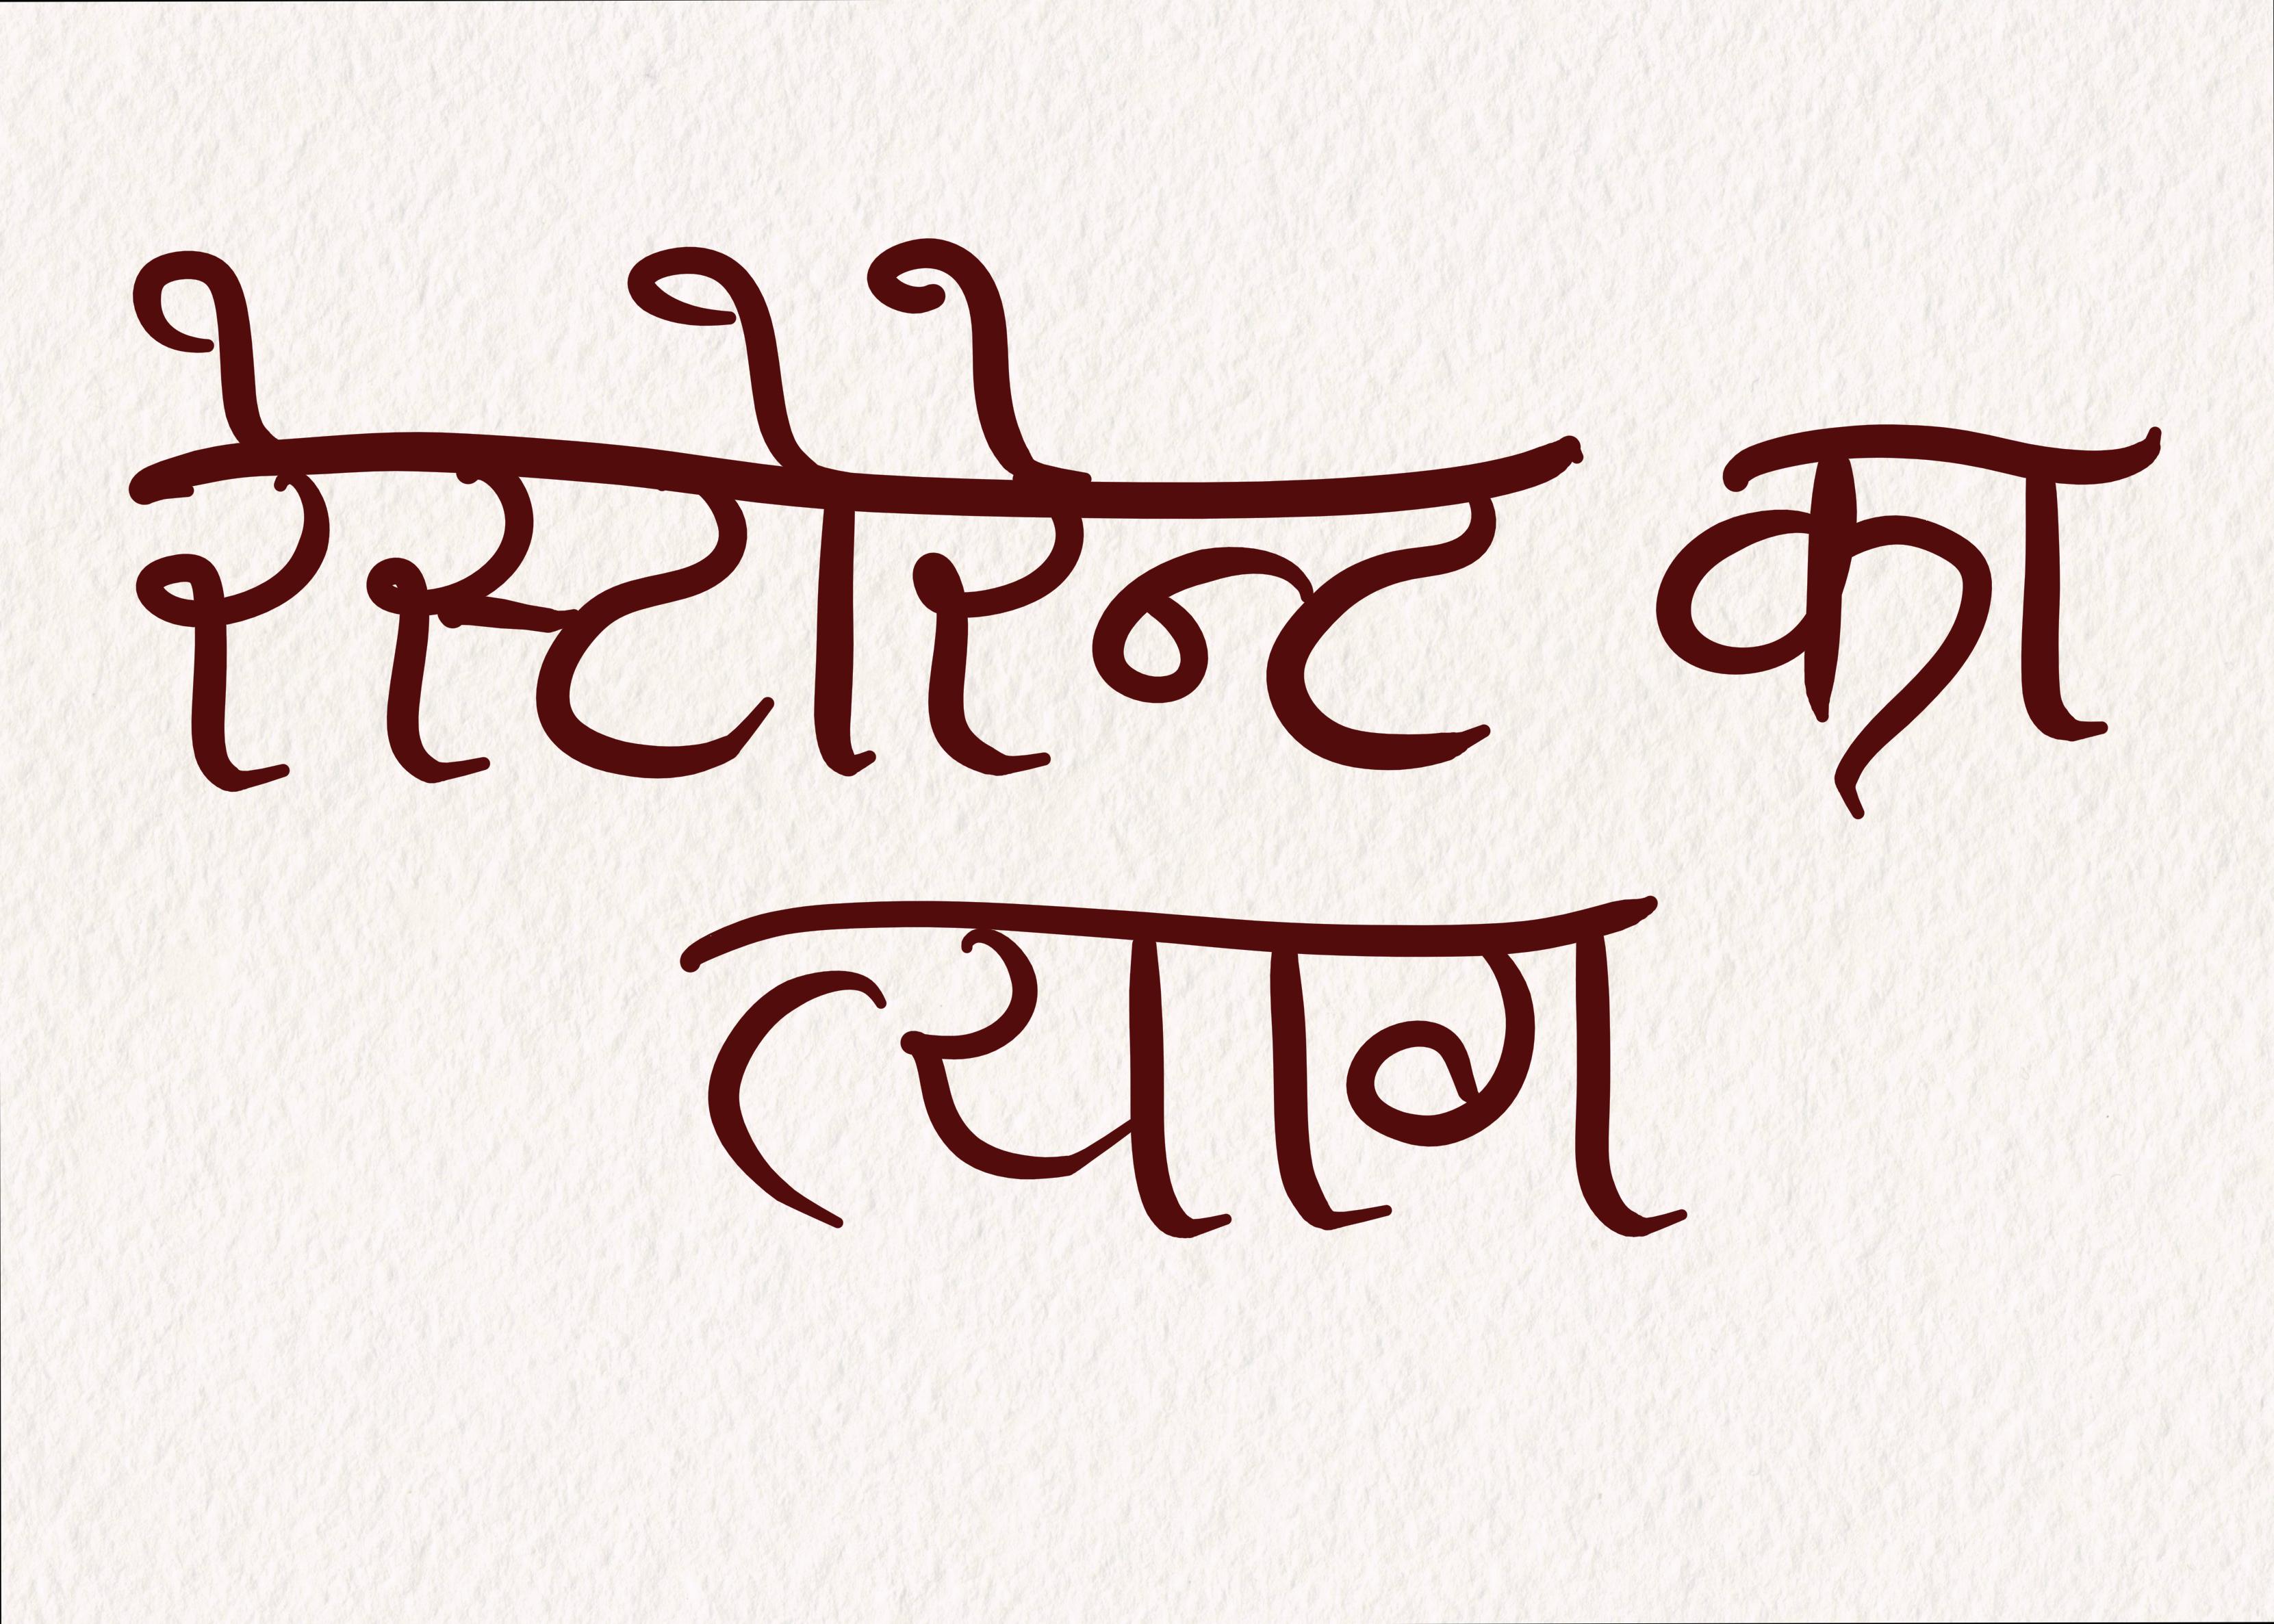 रेस्टोरेन्ट का
त्याग